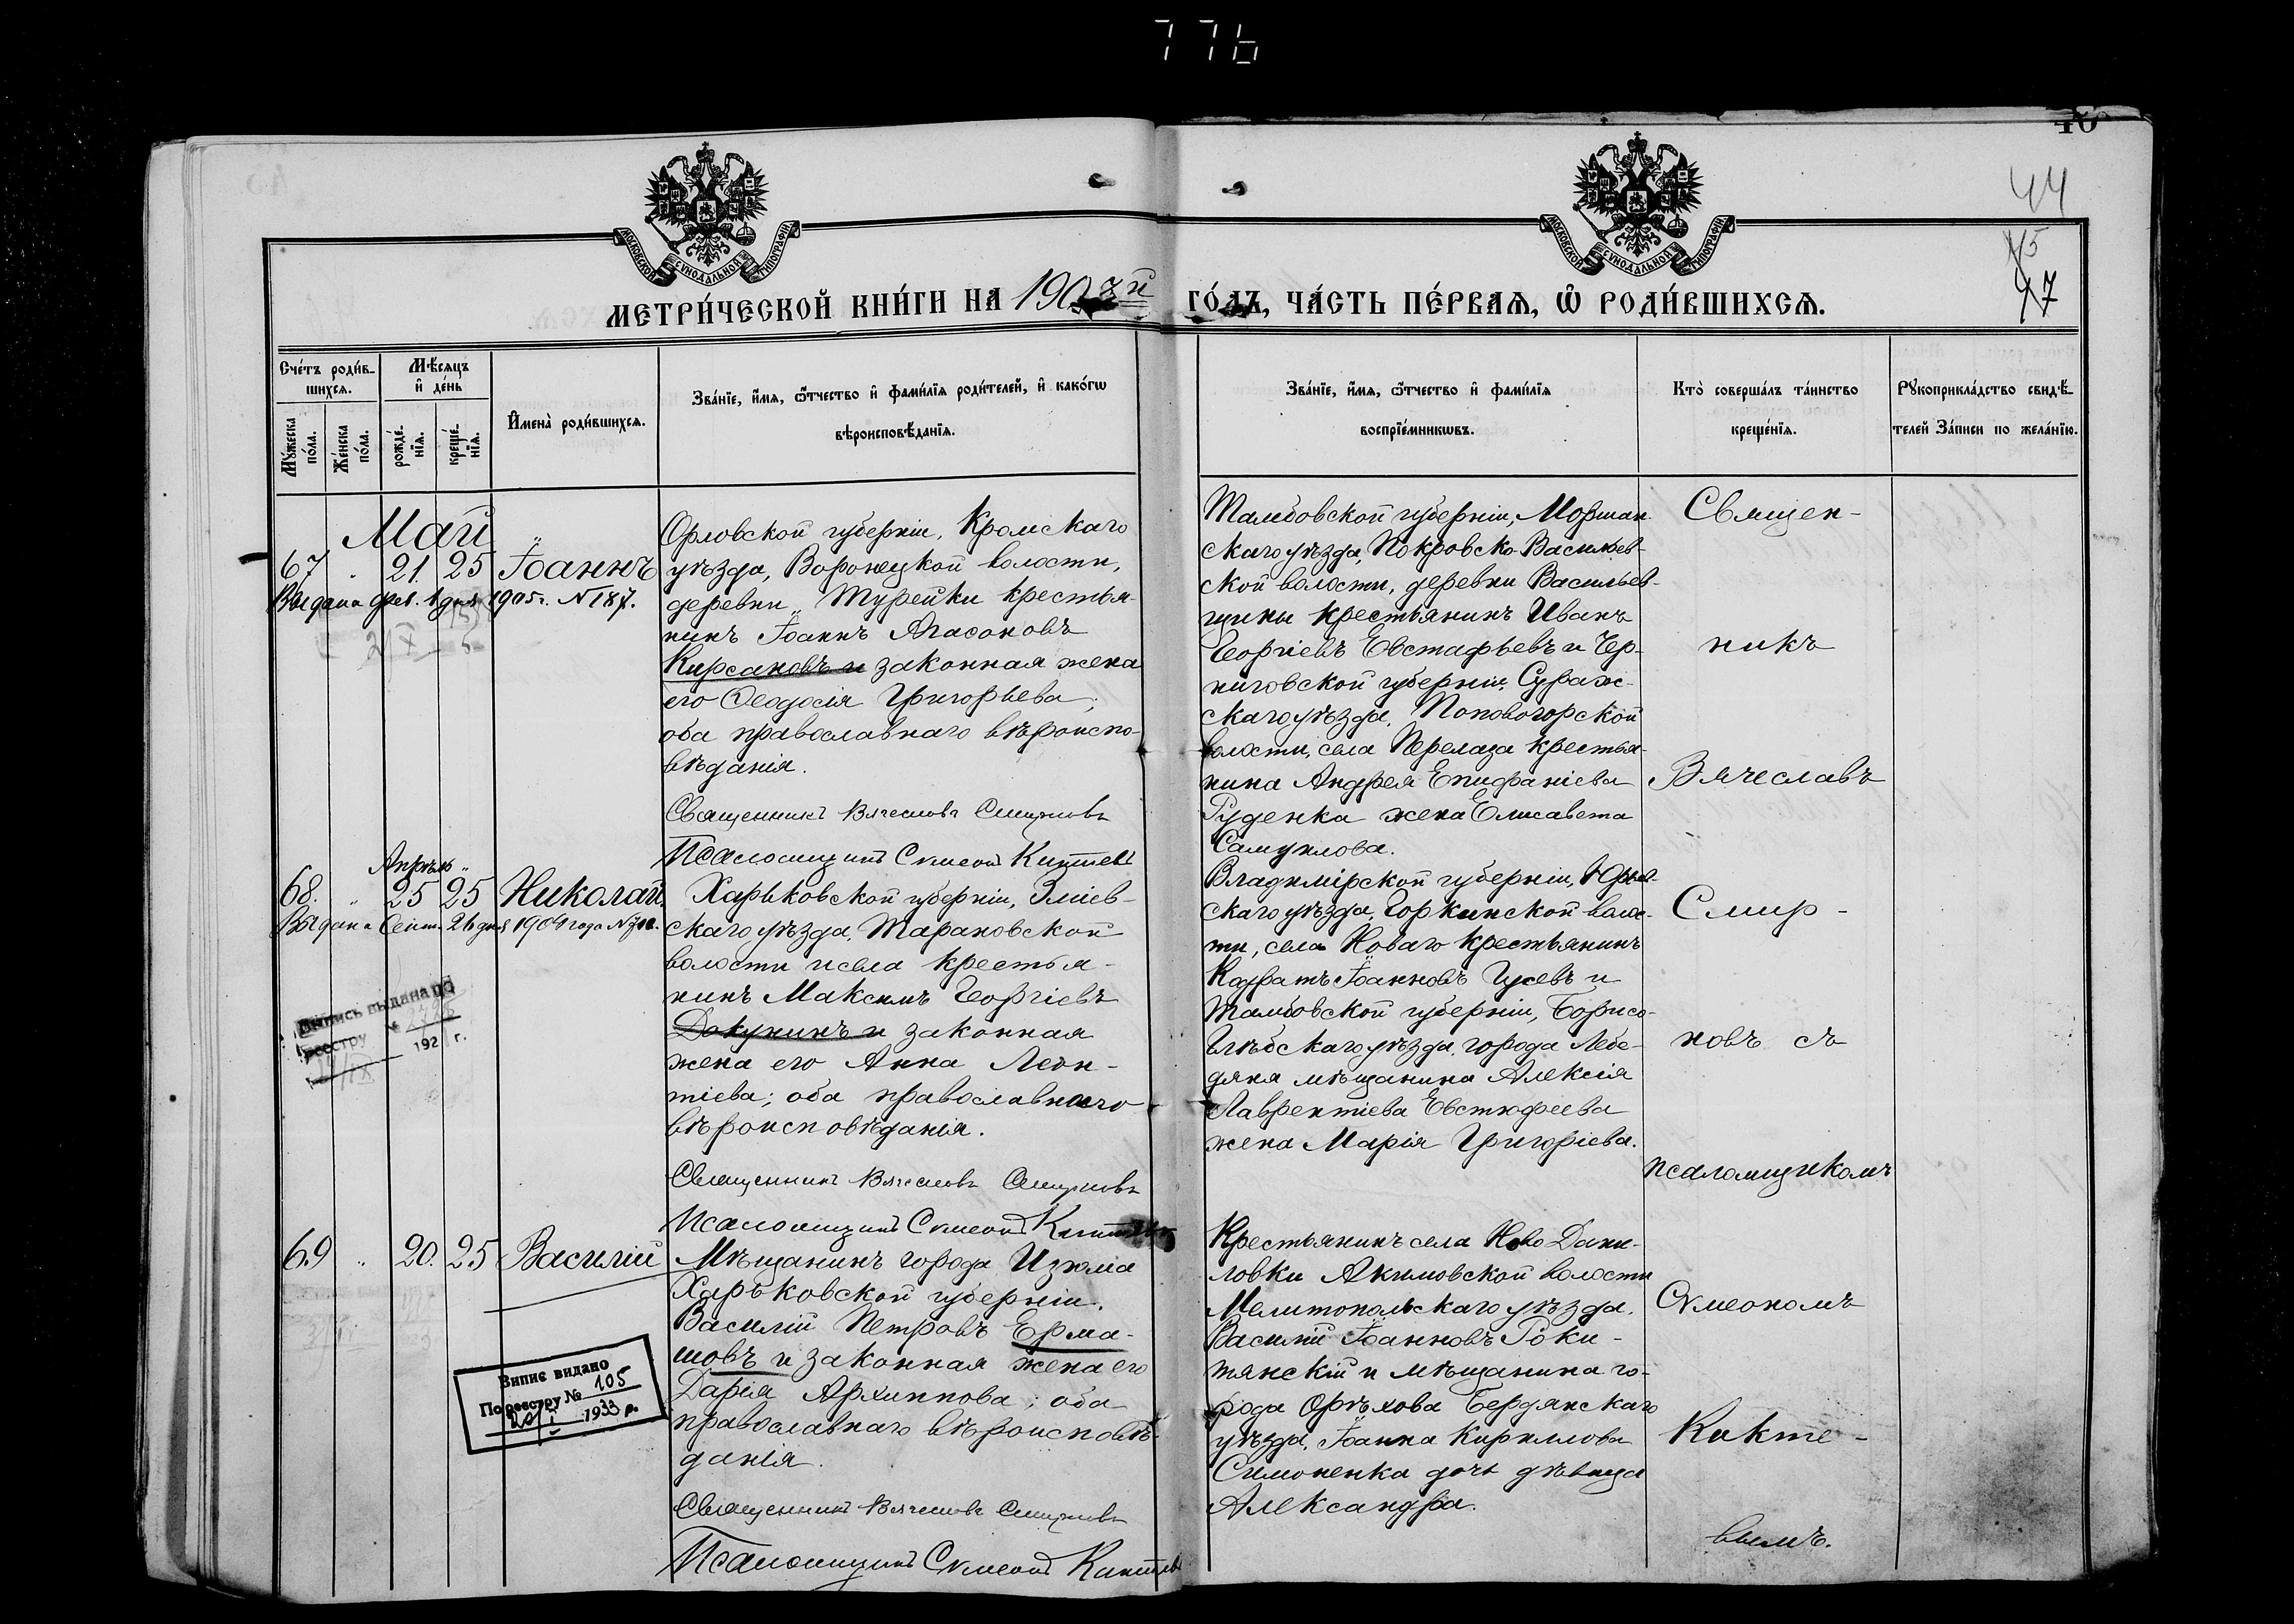 776
46
44
45
47
МОСКОВСКОЙ СѴНОДАЛЬНОЙ ТИПОГРАФІИ
МОСКОВСКОЙ СѴНОДАЛЬНОЙ ТИПОГРАФІИ
МЕТРИ́ЧЕСКОЙ КНИ́ГИ НА 1903й ГО́ДЪ, ЧА́СТЬ ПЕ́РВАѦ, Ѡ҆ РОДИ́ВШИХСѦ.
Сче́тъ роди́в-
шихсѧ.
Мѣ́сѧцъ
и҆ де́нь
Мꙋ́жеска
по́ла.
Же́нска
по́ла.
рожде́-
нїѧ.
креще́-
нїѧ.
И҆мена̀ роди́вшихсѧ.
Зва́нїе, и҆́мѧ, ѻ҆́тчество и҆ фами́лїѧ роди́телей, и҆ како́гѡ
вѣроисповѣ́данїѧ.
Зва́нїе, и҆́мѧ, ѻ҆́тчество и҆ фами́лїѧ
воспрїе́мникѡвъ.
Кто̀ соверша́лъ та́инство
креще́нїѧ.
Рꙋкоприкла́дство свидѣ́-
телей За́писи по жела́нїю.
Май
67 " 21. 25 Іоаннъ
Выдана фев. 1 дня 1905 г. N 187.
Орловской губерніи, Кромскаго
уѣзда, Воронецкой волости,
деревни Турейки крестья-
нинъ Іоаннъ Агасоновъ
Кирсановъ и законная жена
его Ѳеодосія Григорьева;
оба православнаго вѣроиспо-
вѣданія.
Священникъ Вячеславъ Смирновъ
Псаломщикъ Сѵмеонъ Киктевъ
Тамбовской губерніи, Моршан-
скаго уѣзда, Покровско-Васильев-
ской волости, деревни Васильев-
щины крестьянинъ Иванъ
Георгіевъ Евстафьевъ и Чер-
ниговской губерніи, Сураж-
скаго уѣзда, Поповогорской
волости, села Перелаза крестья-
нина Андрея Епифаніева
Руденка жена Елисавета
Самуилова.
Апрѣль
68. " 25 25 Николай
Выдана Сент. 26 дня 1909 года
Выпись выдана по
реестру №
192 г.
Харьковской губерніи, Зміев-
скаго уѣзда, Тарановской
волости и села крестья-
нинъ Максимъ Георгіевъ
Докунинъ и законная
жена его Анна Леон-
тіева; оба православнаго
вѣроисповѣданія.
Священникъ Вячеславъ Смирновъ
Псаломщикъ Сѵмеонъ Киктевъ
Владимірской губерніи, Юрьев-
скаго уѣзда, Горкинской волос-
ти, села Новаго крестьянинъ
Кодратъ Іоанновъ Гусевъ и
Тамбовской губерніи, Борисо-
глѣбскаго уѣзда, города Лебе-
дяна мѣщанина Алексія
Лаврентіева Евстюфеева
жена Марія Григоріева.
69 " 20. 25 Василій
Випис видано
По реєстру № 105
20/I 1933 р.
Мѣщанинъ города Изюма
Харьковской губерніи,
Василій Петровъ Ерма-
шовъ и законная жена его
Дарія Архиппова; оба
православнаго вѣроисповѣ-
данія.
Священникъ Вячеславъ Смирновъ
Псаломщикъ Сѵмеонъ Киктевъ
Крестьянинъ села Ново Дани-
ловки Акимовской волости
Мелитопольскаго уѣзда,
Василій Іоанновъ Роки-
тянскій и мѣщанина го-
рода Орѣхова Бердянскаго
уѣзда, Іоанна Кириллова
Симоненка дочь дѣвица
Александра.
Священ-
никъ
Вячеславъ
Смир-
новъ съ
псаломщикомъ
Сѵмеономъ
Кикте-
вымъ.